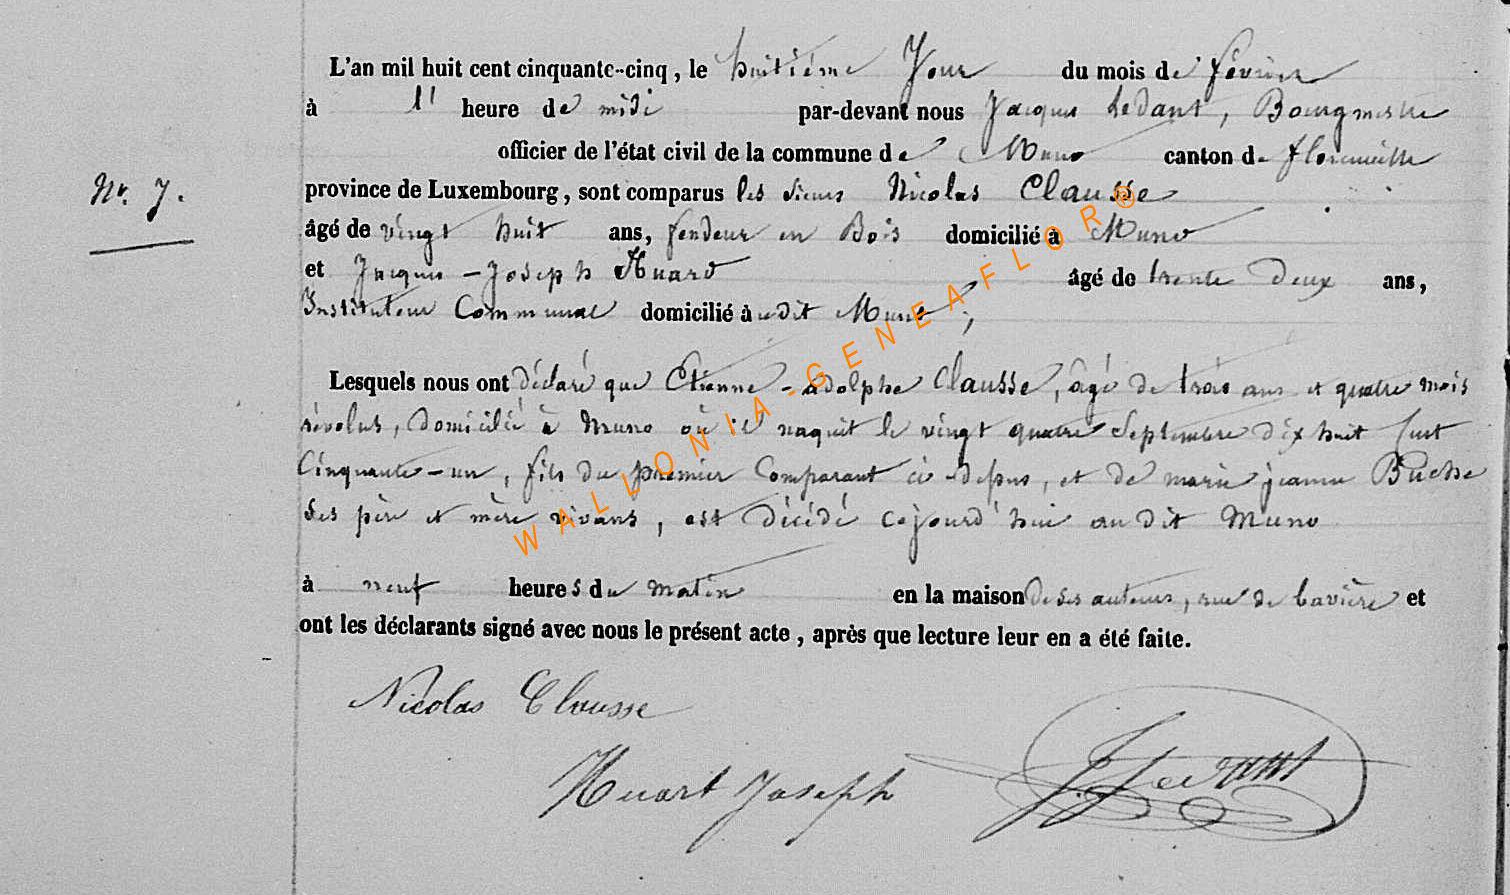 L'an mil huit cent cinquante-cinq, le huitième Jour du mois de février
à l' heure de midi par-devant nous Jacques Ledant, Bourgmestre
officier de l'état civil de la commune de Muno canton de florenville
province de Luxembourg, sont comparus les sieurs Nicolas Clausse
Nr. 7.
âgé de vingt huit ans, fendeur en Bois domicilié à Muno
et Jacques-Joseph Huard âgé de trente deux ans,
Instituteur Communal domicilié à udit Muno,
Lesquels nous ont déclaré que Etienne-adolphe Clausse, âgé de trois ans et quatre mois
révolus, domicilié à Muno où il naquit le vingt quatre Septembre dix huit Cent
Cinquante-un, fils du premier Comparant ci-dessus, et de marie jeanne
Ses père et mère vivans, est décédé cejourd'hui au dit Muno
à neuf heures du matin en la maison de ses auteurs, rue de bavière et
ont les déclarants signé avec nous le présent acte, après que lecture leur en a été faite.
Nicolas Clausse
Huart Joseph
J. Ledant
WALLONIA-GENEAFLOR®